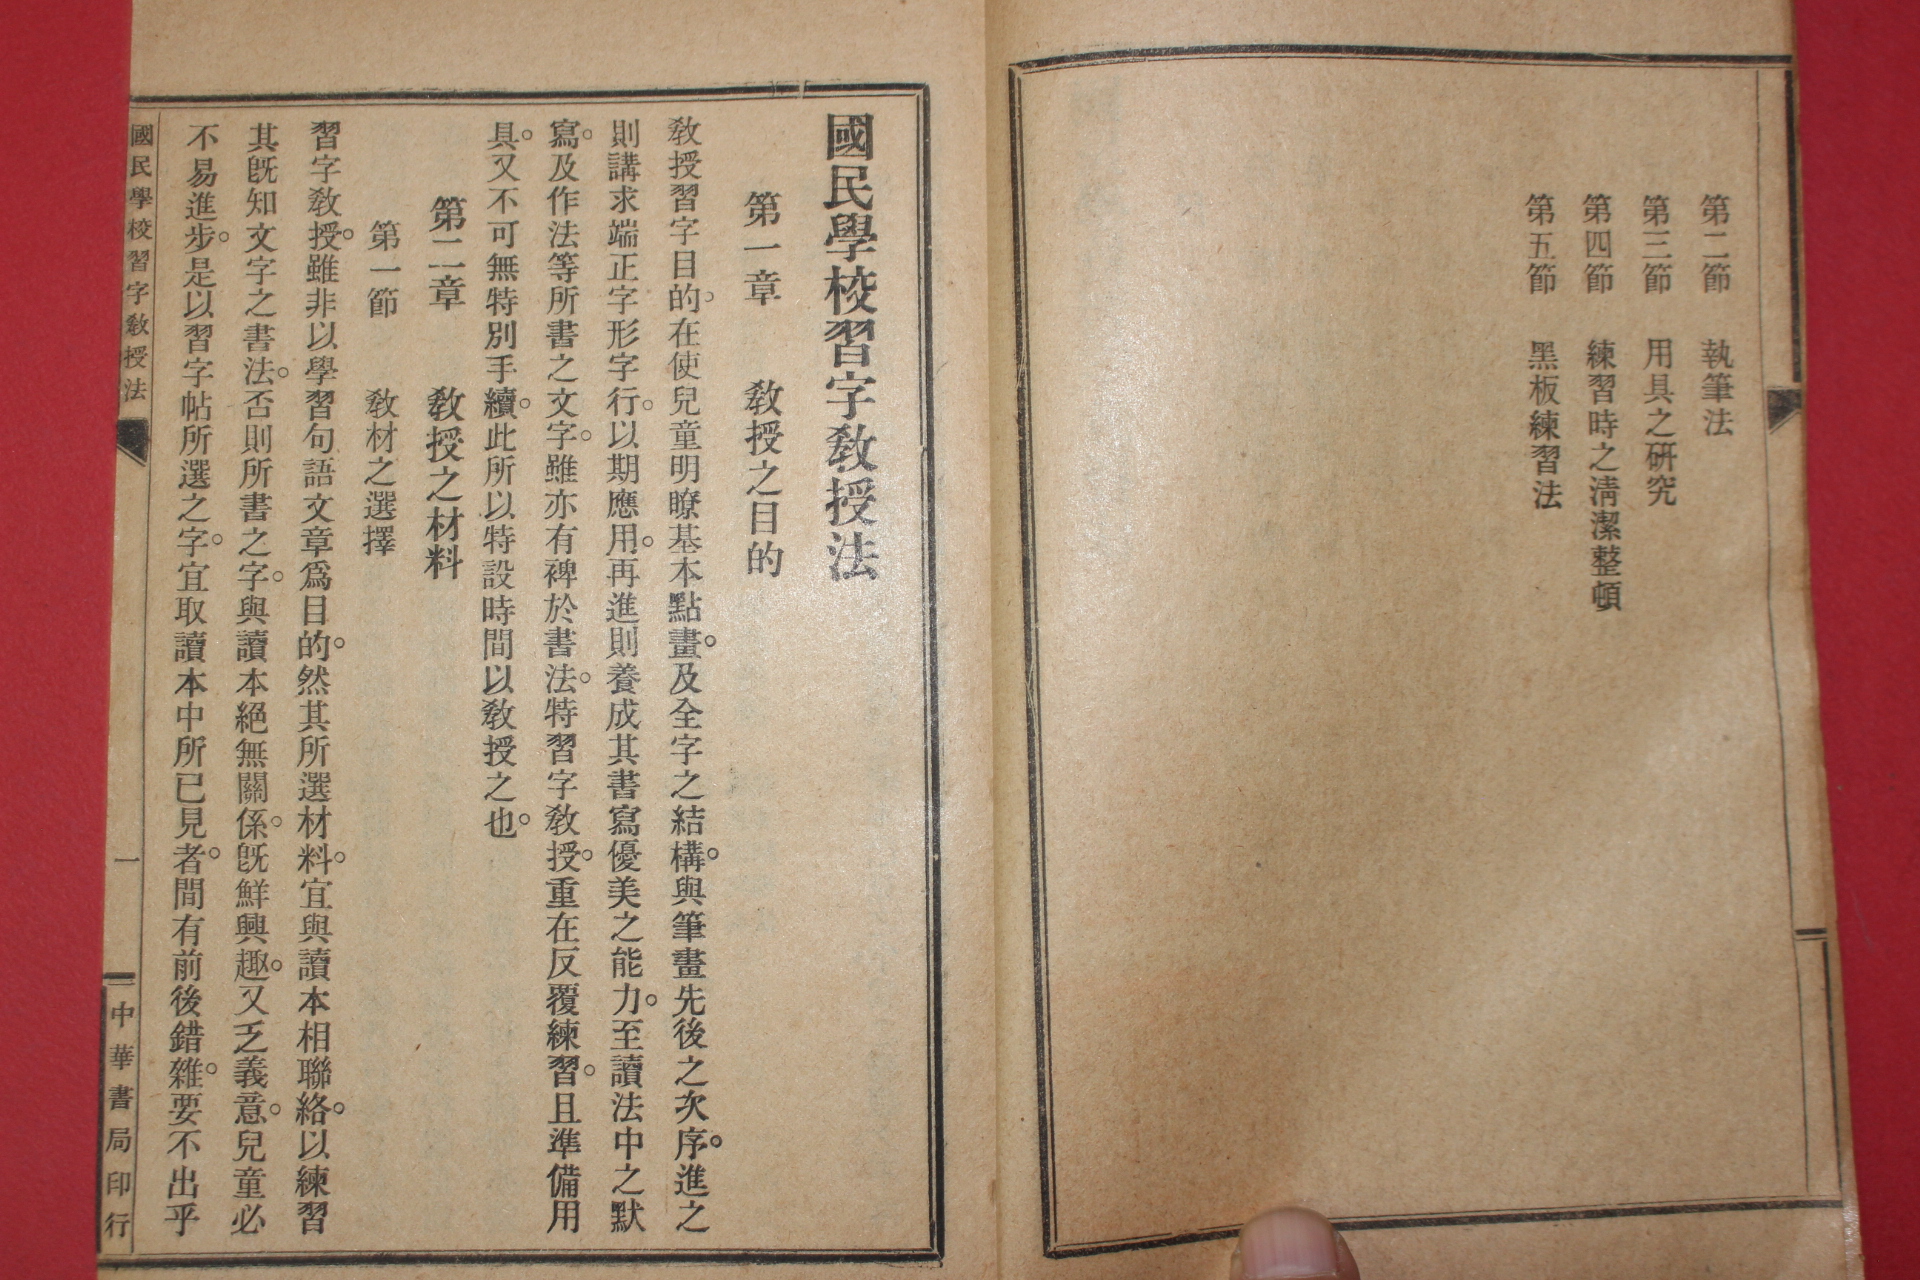 第二節　執筆法
第三節　用具之研究
第四節　練習時之淸潔整頓
第五節　黑板練習法
國民學校習字敎授法
第一章　敎授之目的
敎授習字目的。在使兒童明瞭基本點畫。及全字之結構。與筆畫先後之次序。進之
則講求端正字形字行。以期應用。再進則養成其書寫優美之能力。至讀法中之默
寫。及作法等所書之文字。雖亦有裨於書法。特習字敎授。重在反覆練習。且準備用
具。又不可無特別手續。此所以特設時間以敎授之也。
第二章　敎授之材料
第一節　敎材之選擇
習字敎授。雖非以學習句語文章爲目的。然其所選材料。宜與讀本相聯絡。以練習
其旣知文字之書法。否則所書之字。與讀本絕無關係。旣鮮興趣。又乏義意。兒童必
不易進步。是以習字帖所選之字。宜取讀本中所已見者。間有前後錯雜。要不出乎
國民學校習字敎授法
一
中華書局印行